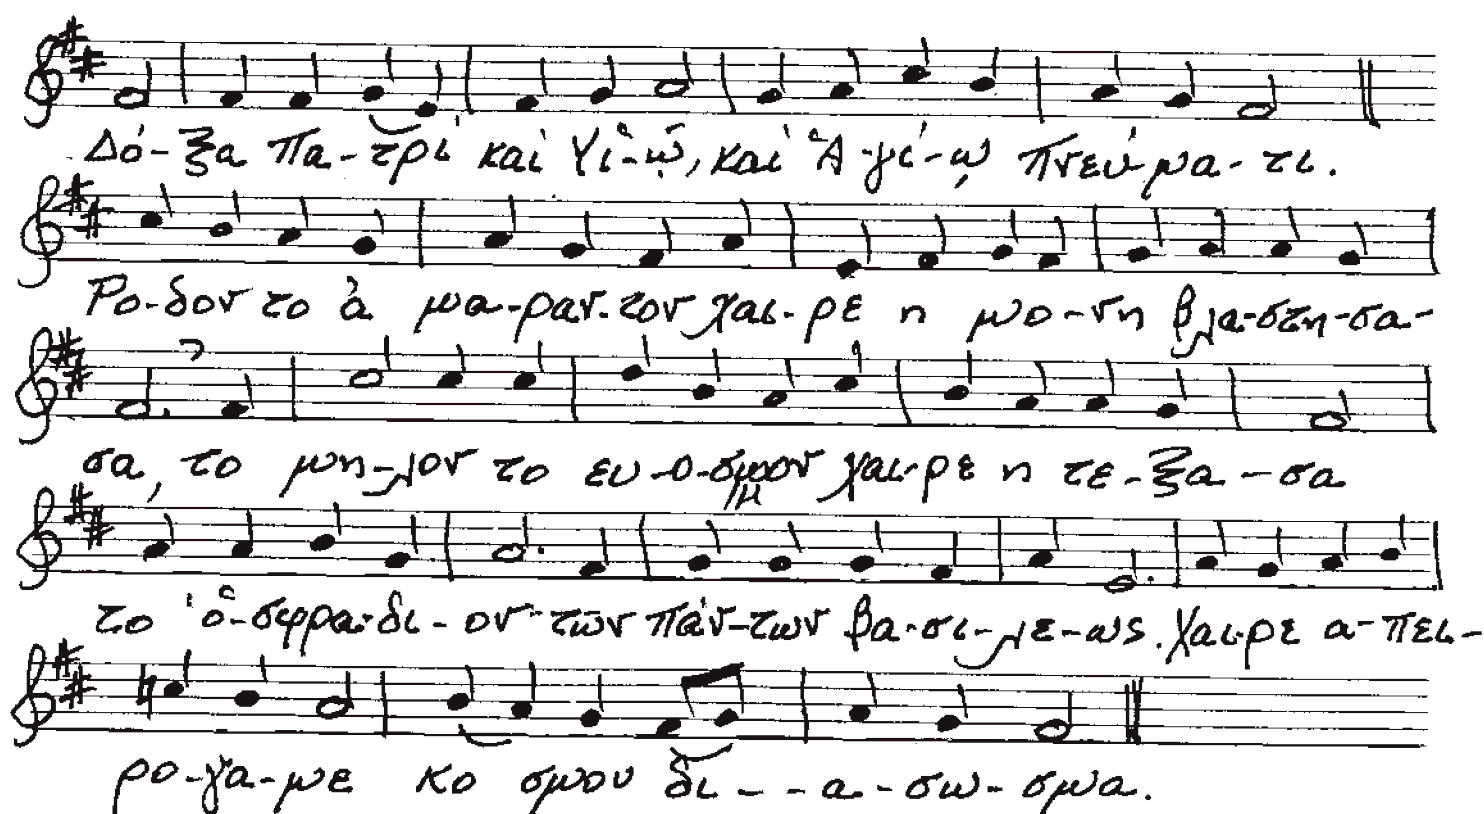 Δό-ξα Πα-τρί καί Υἱ-ῷ, καί Ἁ-γί-ῳ Πνεύ-μα-τι.
Ρο-δον το ἀ μα-ραν-τον χαι-ρε η μο-νη βλα-στη-σα-
σα, το μη-λον το ευ-ο-σμον χαι-ρε η τε-ξα-σα
το ὀ-σφρα-δι-ον-των πάν-των βα-σι-λε-ως. χαι-ρε α-πει-
ρο-γα-με κο σμου δι--α-σω-σμα.